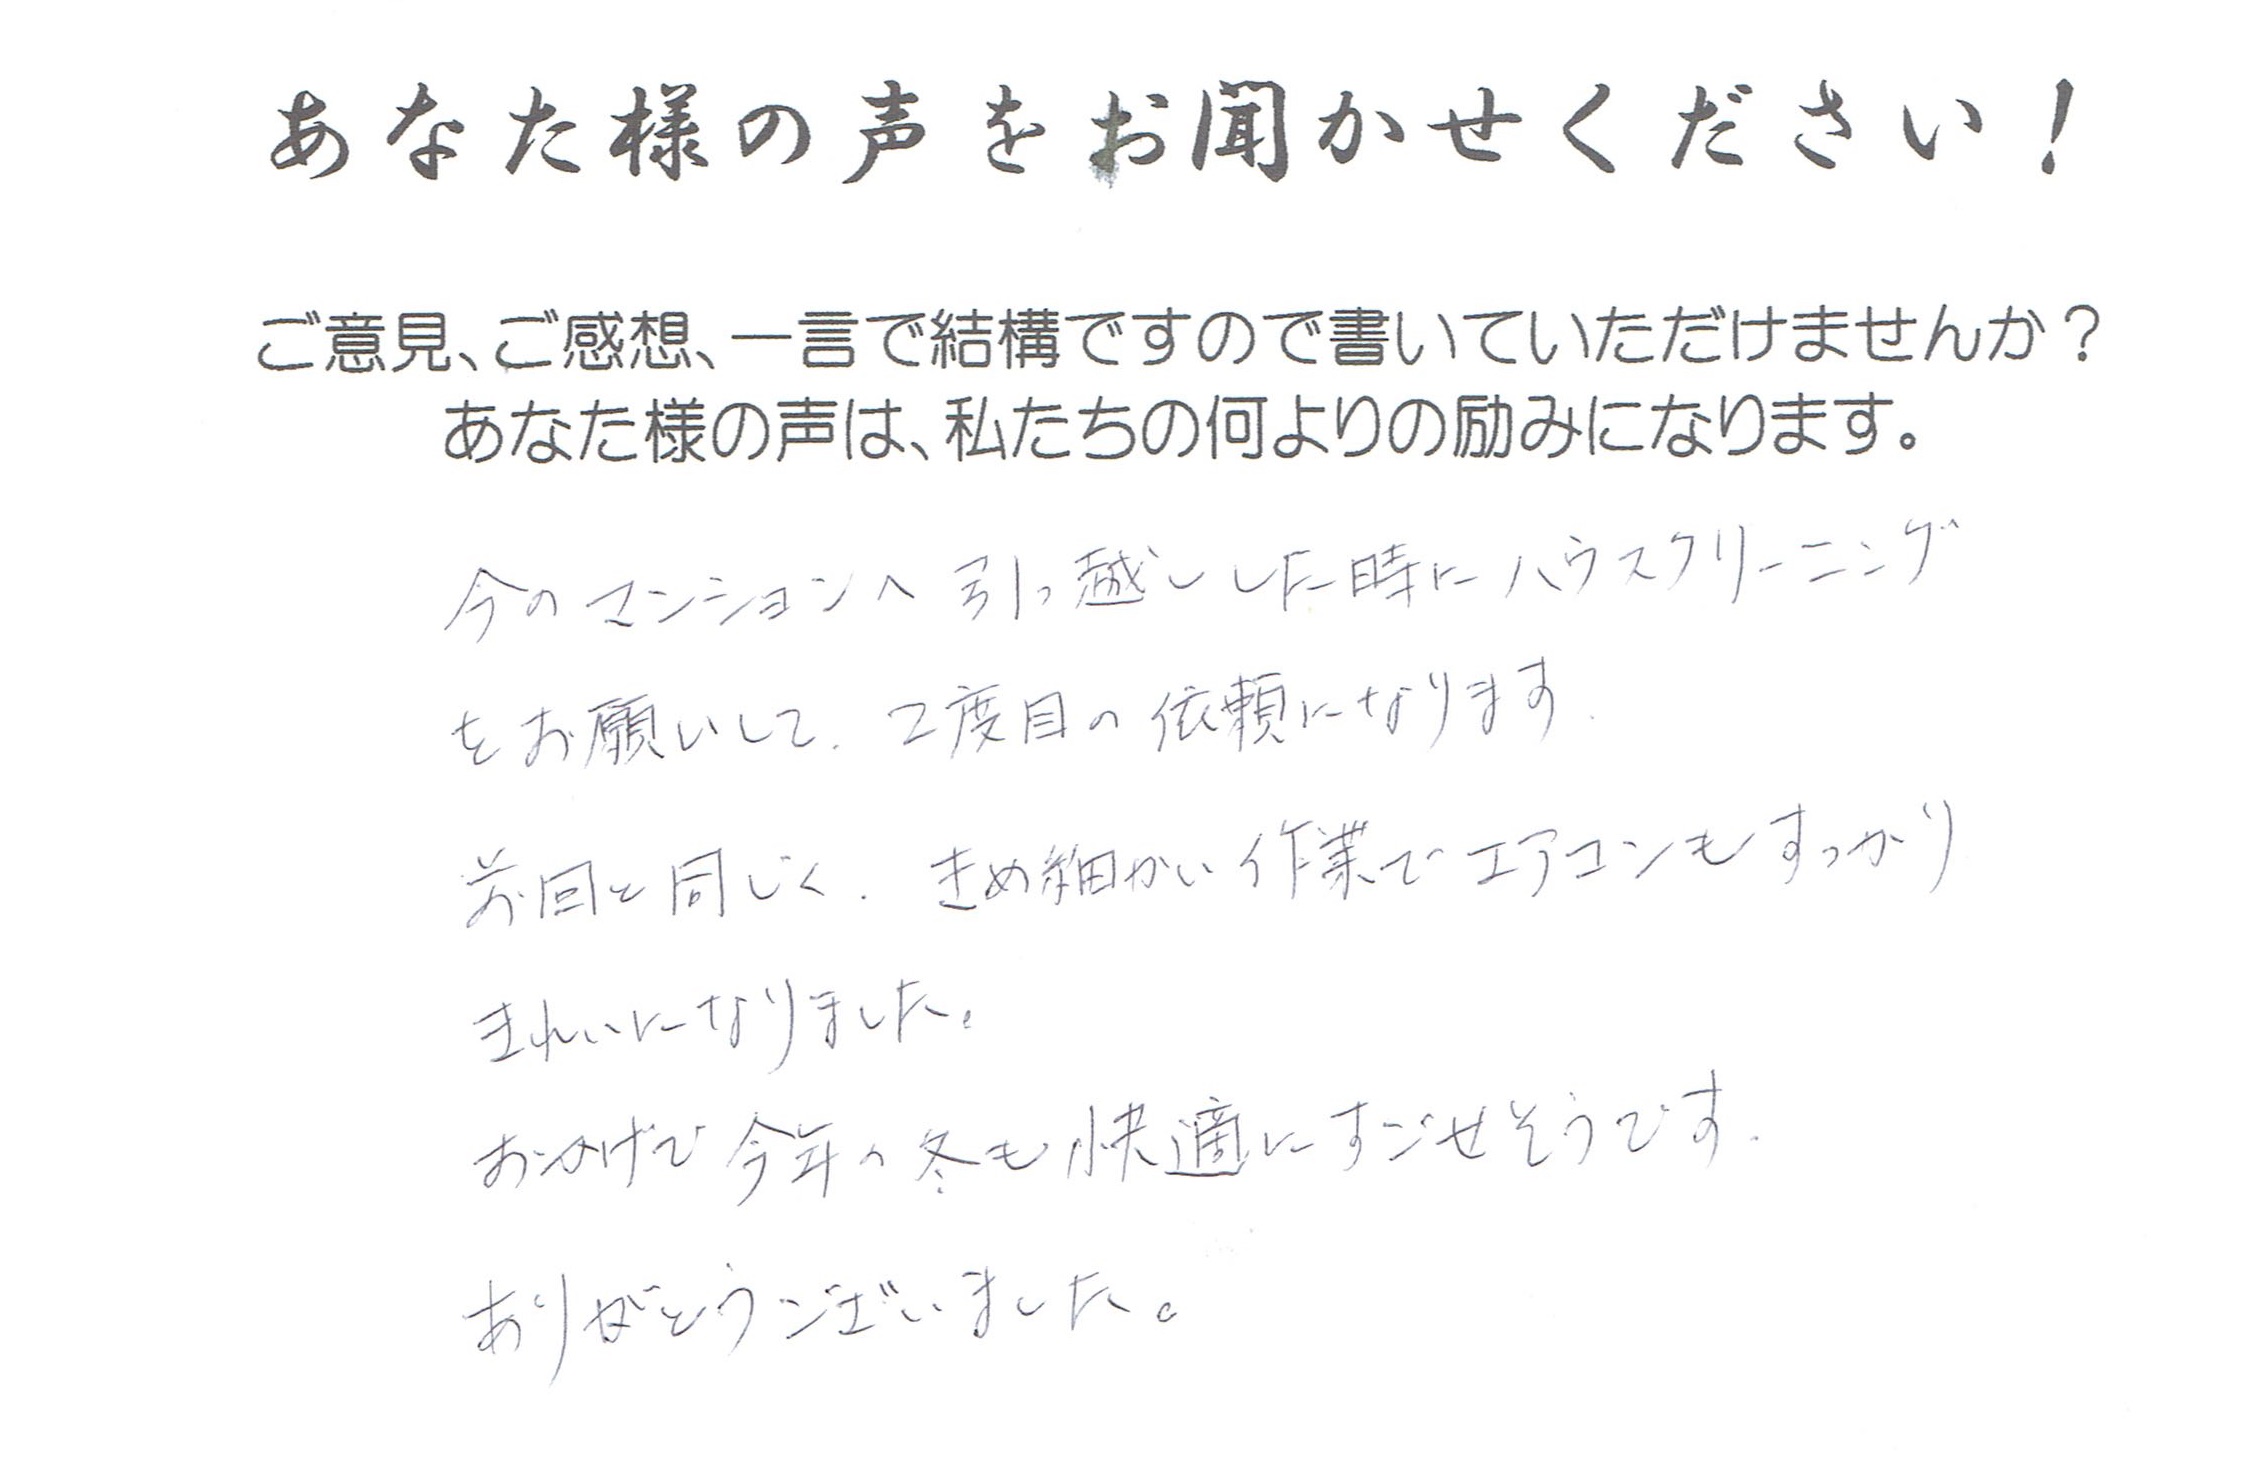 あなた様の声をお聞かせください！
ご意見、ご感想、一言で結構ですので書いていただけませんか？
あなた様の声は、私たちの何よりの励みになります。
今のマンションへ引っ越しした時にハウスクリーニング
をお願いして、2度目の依頼になります。
前回と同じく、きめ細かい作業でエアコンもすっかり
きれいになりました。
おかげで今年の冬も快適にすごせそうです。
ありがとうございました。